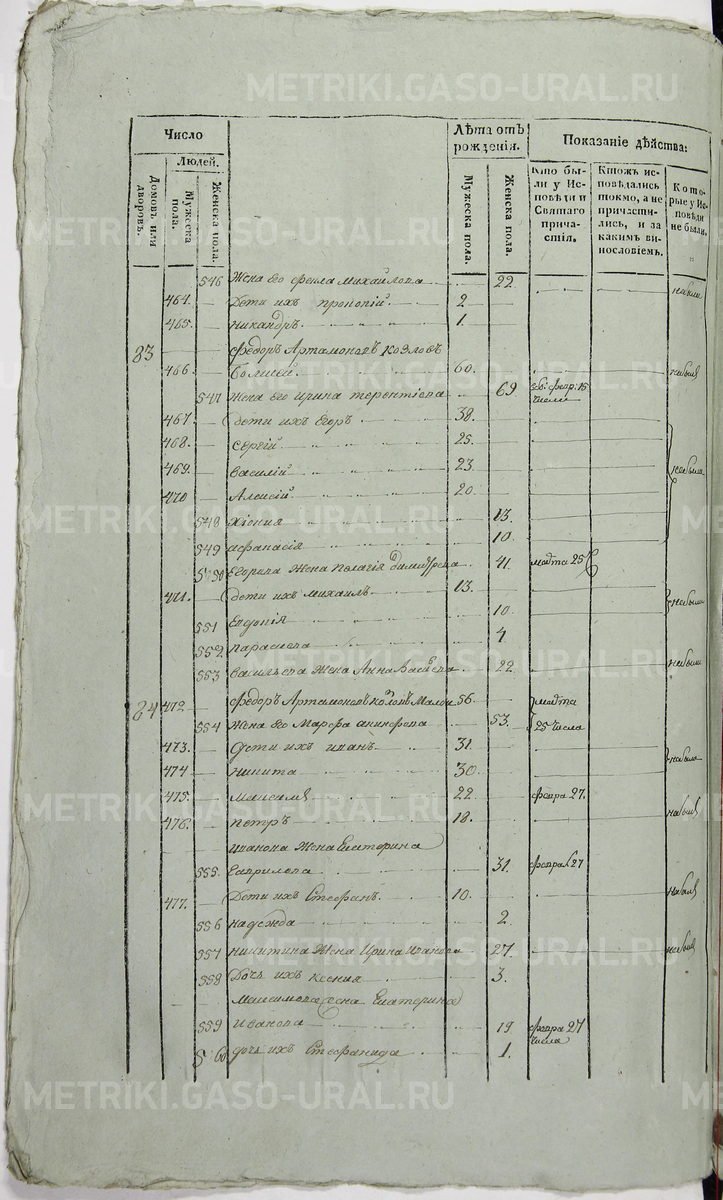 METRIKI.GASO-URAL.RU
Число
Людей.
Домовъ или дворовъ.
Мужеска пола.
Женска пола.
Лѣта отъ рожденія.
Мужеска пола.
Женска пола.
Показаніе дѣйства:
Кто бы-
ли у Ис-
повѣди и
Святаго
прича-
стія.
Ктожъ ис-
повѣдались
токмо, а не
причасти-
лись, и за
какимъ ви-
нословіемъ.
Кото-
рые у Ис-
повѣди
не были.
546 Жена его Михайлова 22 небыли
464. Дети ихъ Прокопій 2
465. Никандръ 1.
83 Федоръ Артамоновъ Козловъ
466 Болшей 60. небылъ
547 Жена его Ирина Терентіева 69 февр: 15 числа
467 дети ихъ Егоръ 38.
468. Сергій 25.
469. Василій 23 небыли
470 Алексій 20
548 Хіония 13.
549 Афанасія 10.
550 Егорина Жена Пелагія 41. марта 25
471. дети ихъ Михаилъ 13. небыли
551 Евдокія 10.
552. Параскева 4
553 Васильева Жена Анна 22. небыли
84 472 Федоръ Артамоновъ 56. марта
554 Жена его Марфа 53. 25 числа
473. Дети ихъ Иванъ 31. небыли
474 Никита 30.
475. Максимъ 22. февра 27.
476. Петръ 18. небылъ
Иванова Жена Екатерина
555. Гаврилова 31. февра 27
477. Дети ихъ Стефанъ 10. небылъ
556 Надежда 2.
557 Никитина Жена Ирина Иванова 27. небыла
558 Дочь ихъ Ксения 3.
Максимова жена Екатерина
559 Иванова 19 февра 27 числа
560 дочь ихъ Стефанида 1.